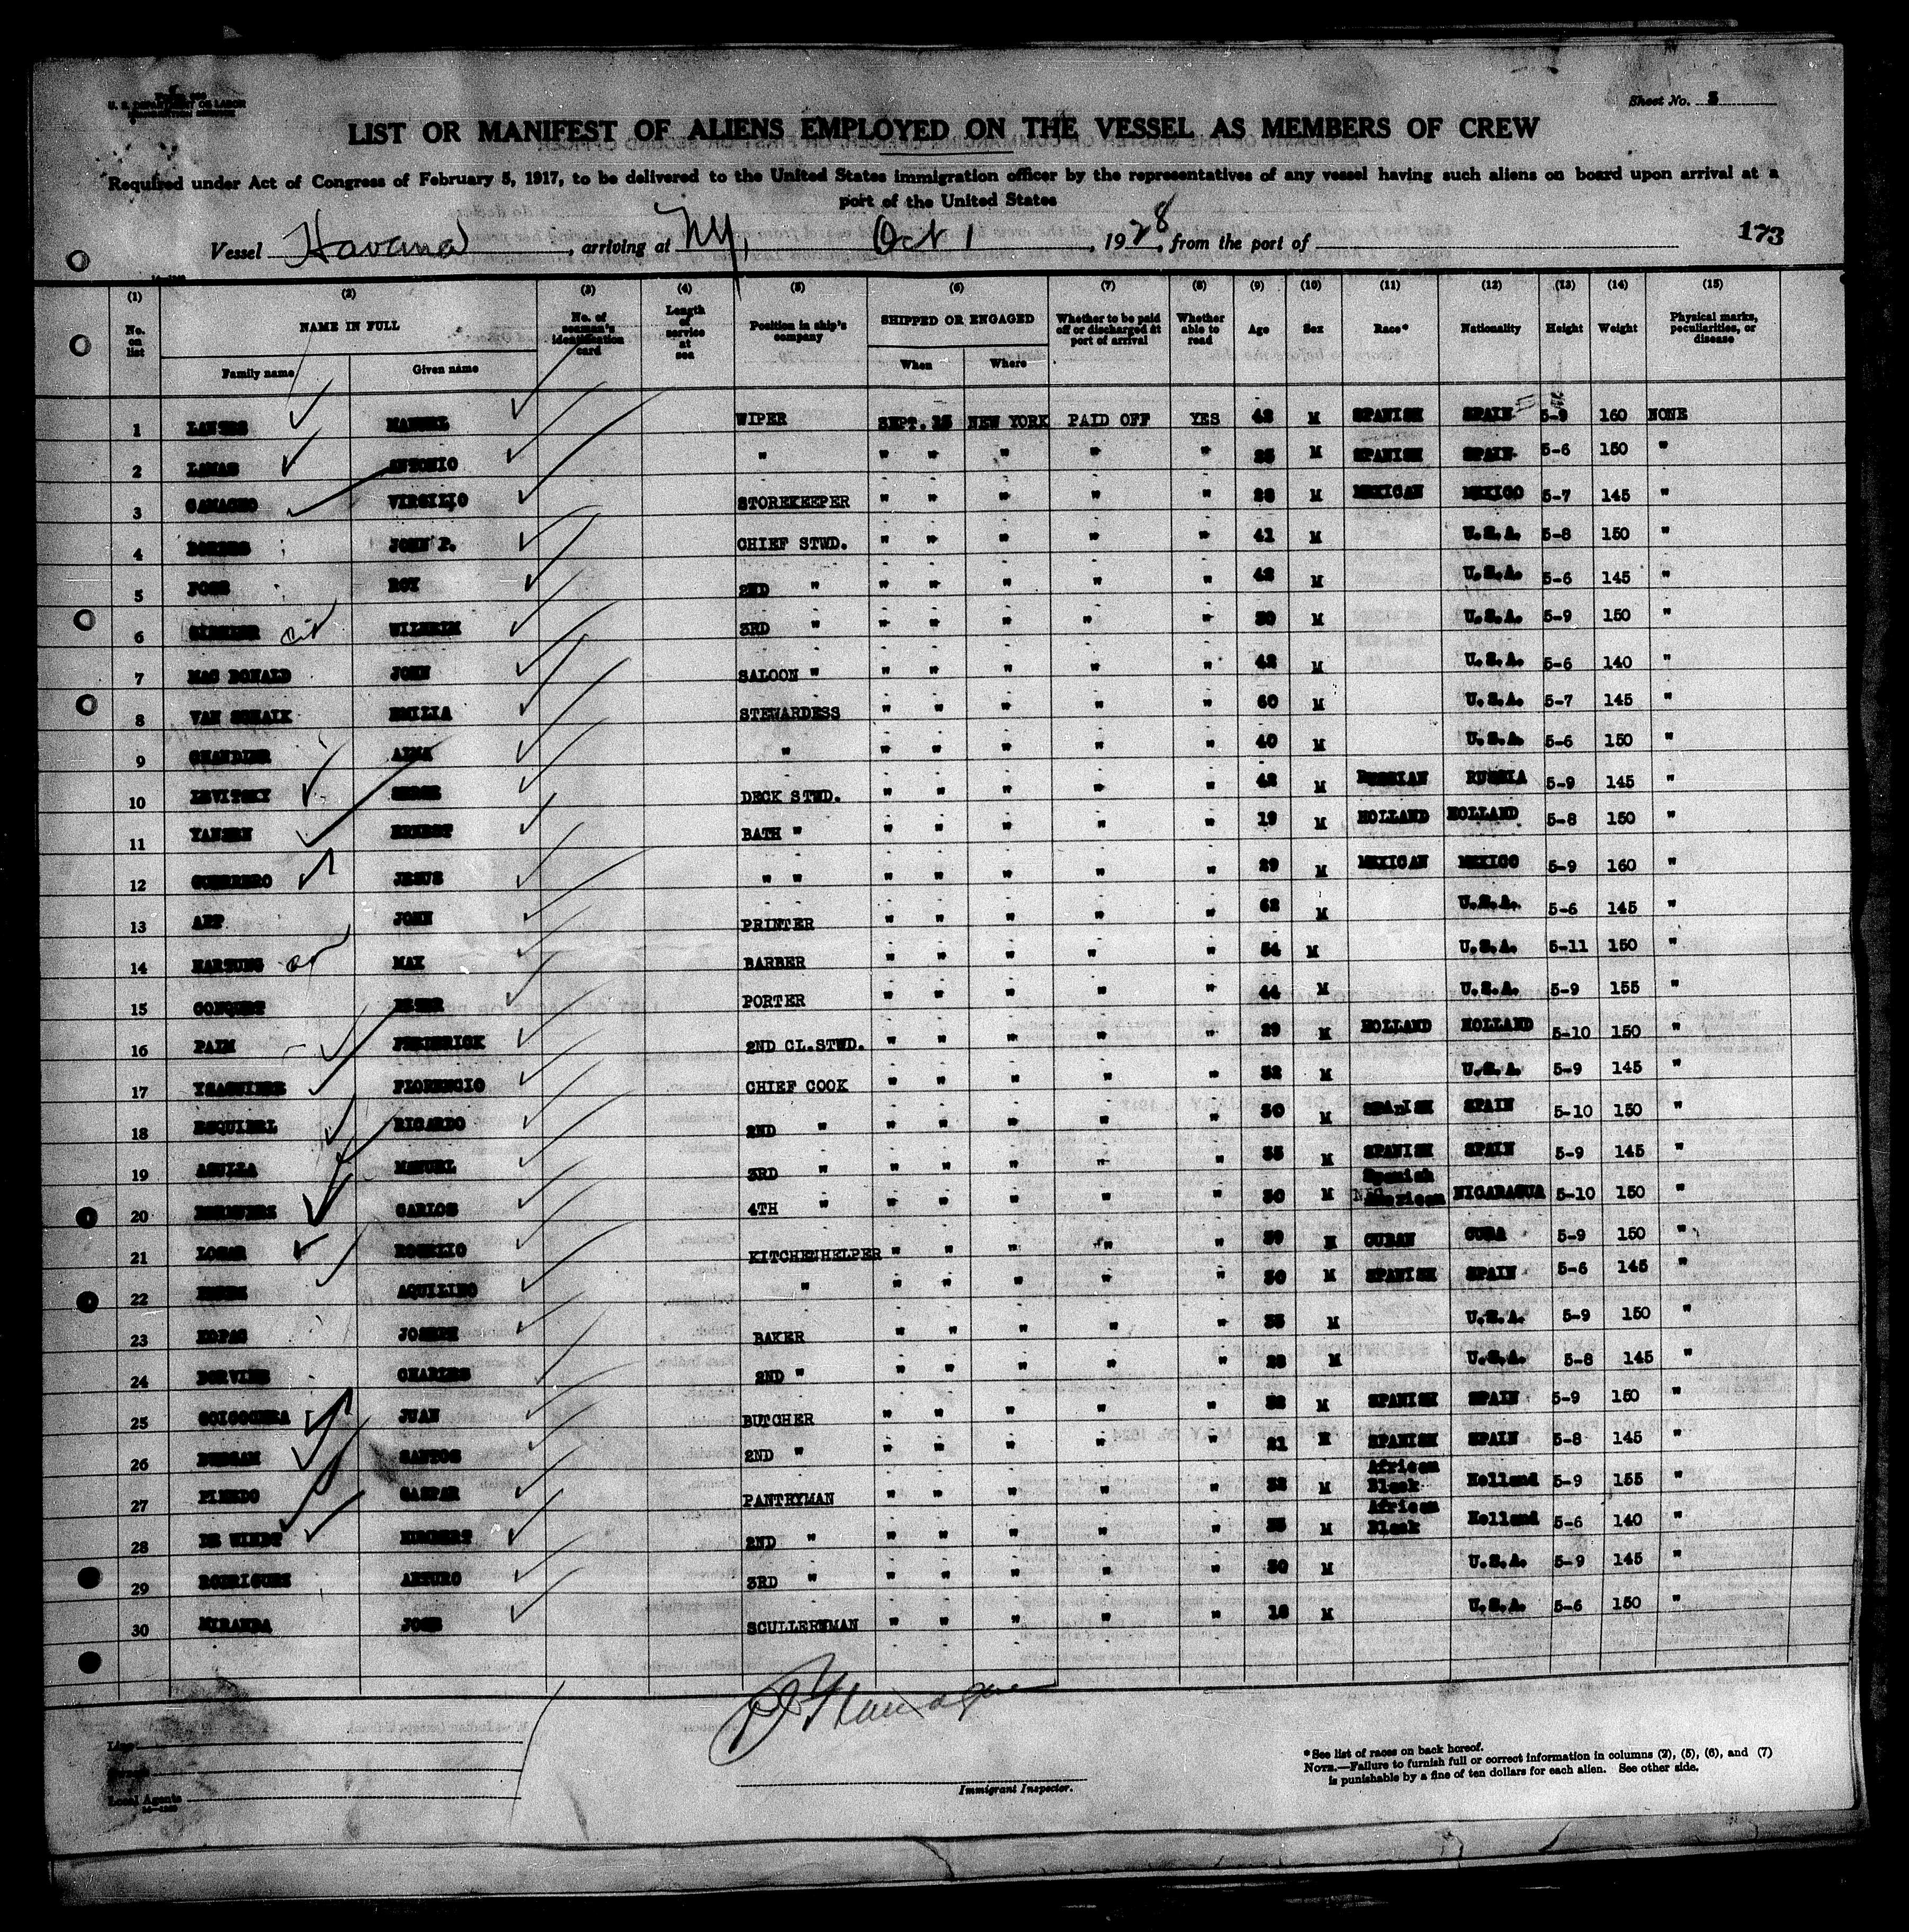 U. S. DEPARTMENT OF LABOR
Sheet No. 5
LIST OR MANIFEST OF ALIENS EMPLOYED ON THE VESSEL AS MEMBERS OF CREW
Required under Act of Congress of February 5, 1917, to be delivered to the United States immigration officer by the representatives of any vessel having such aliens on board upon arrival at a
port of the United States
Vessel Havana, arriving at NY, Oct 1, 1928, from the port of
173
(1) (2) (3) (4) (5) (6) (7) (8) (9) (10) (11) (12) (13) (14) (15)
No. on list NAME IN FULL No. of seaman's identification card Length of service at sea Position in ship's company SHIPPED OR ENGAGED Whether to be paid off or discharged at port of arrival Whether able to read Age Sex Race* Nationality Height Weight Physical marks, peculiarities, or disease
Family name Given name When Where
1 MANUEL WIPER SEPT. NEW YORK PAID OFF YES 42 M SPANISH SPAIN 5-9 160 NONE
2 LAMAS ANTONIO " " " " " " 25 M SPANISH SPAIN 5-6 150 "
3 CAMACHO VIRGILIO STOREKEEPER " " " " " 28 M MEXICAN MEXICO 5-7 145 "
4 JOHN P. CHIEF STWD. " " " " " 41 M U.S.A. 5-8 150 "
5 FOSS ROY 2ND " " " " " " 42 M U.S.A. 5-6 145 "
6 WILHELM 3RD " " " " " " 30 M U.S.A. 5-9 150 "
7 MAC DONALD JOHN SALOON " " " " " " 42 M U.S.A. 5-6 140 "
8 VAN SCHAIK EMILIA STEWARDESS " " " " " 60 M U.S.A. 5-7 145 "
9 CHANDLER ALMA " " " " " " 40 M U.S.A. 5-6 150 "
10 LEVITSKY SERGE DECK STWD. " " " " " 42 M RUSSIAN RUSSIA 5-9 145 "
11 YANSEN ERNEST BATH " " " " " " 19 M HOLLAND HOLLAND 5-8 150 "
12 GUERRERO JESUS " " " " " " " 29 M MEXICAN MEXICO 5-9 160 "
13 ARP JOHN PRINTER " " " " " 62 M U.S.A. 5-6 145 "
14 HARTUNG MAX BARBER " " " " " 54 M U.S.A. 5-11 150 "
15 CONQUEST PORTER " " " " " 44 M U.S.A. 5-9 155 "
16 PAIM FREDERICK 2ND CL.STWD. " " " " " 29 M HOLLAND HOLLAND 5-10 150 "
17 FLORENCIO CHIEF COOK " " " " " 52 M U.S.A. 5-9 145 "
18 ESQUIERL RICARDO 2ND " " " " " " 30 M SPANISH SPAIN 5-10 150 "
19 MANUEL 3RD " " " " " " 35 M SPANISH SPAIN 5-9 145 "
20 CARLOS 4TH " " " " " " 30 M Spanish American NICARAGUA 5-10 150 "
21 ROGELIO KITCHENHELPER " " " " " 39 M CUBAN CUBA 5-9 150 "
22 AQUILINO " " " " " " 30 M SPANISH SPAIN 5-6 145 "
23 KOPAC JOSEPH BAKER " " " " " 35 M U.S.A. 5-9 150 "
24 CHARLES 2ND " " " " " " 28 M U.S.A. 5-8 145 "
25 GOICOCHEA JUAN BUTCHER " " " " " 32 M SPANISH SPAIN 5-9 150 "
26 SANTOS 2ND " " " " " " 21 M SPANISH SPAIN 5-8 145 "
27 GASPAR PANTRYMAN " " " " " 32 M African Black Holland 5-9 155 "
28 DE WINDT 2ND " " " " " " 35 M African Black Holland 5-6 140 "
29 RODRIGUEZ ARTURO 3RD " " " " " " 30 M U.S.A. 5-9 145 "
30 MIRANDA JOSE SCULLERYMAN " " " " " 18 M U.S.A. 5-6 150 "
Line
Local Agents
Immigrant Inspector.
*See list of races on back hereof.
NOTE.—Failure to furnish full or correct information in columns (2), (5), (6), and (7)
is punishable by a fine of ten dollars for each alien. See other side.